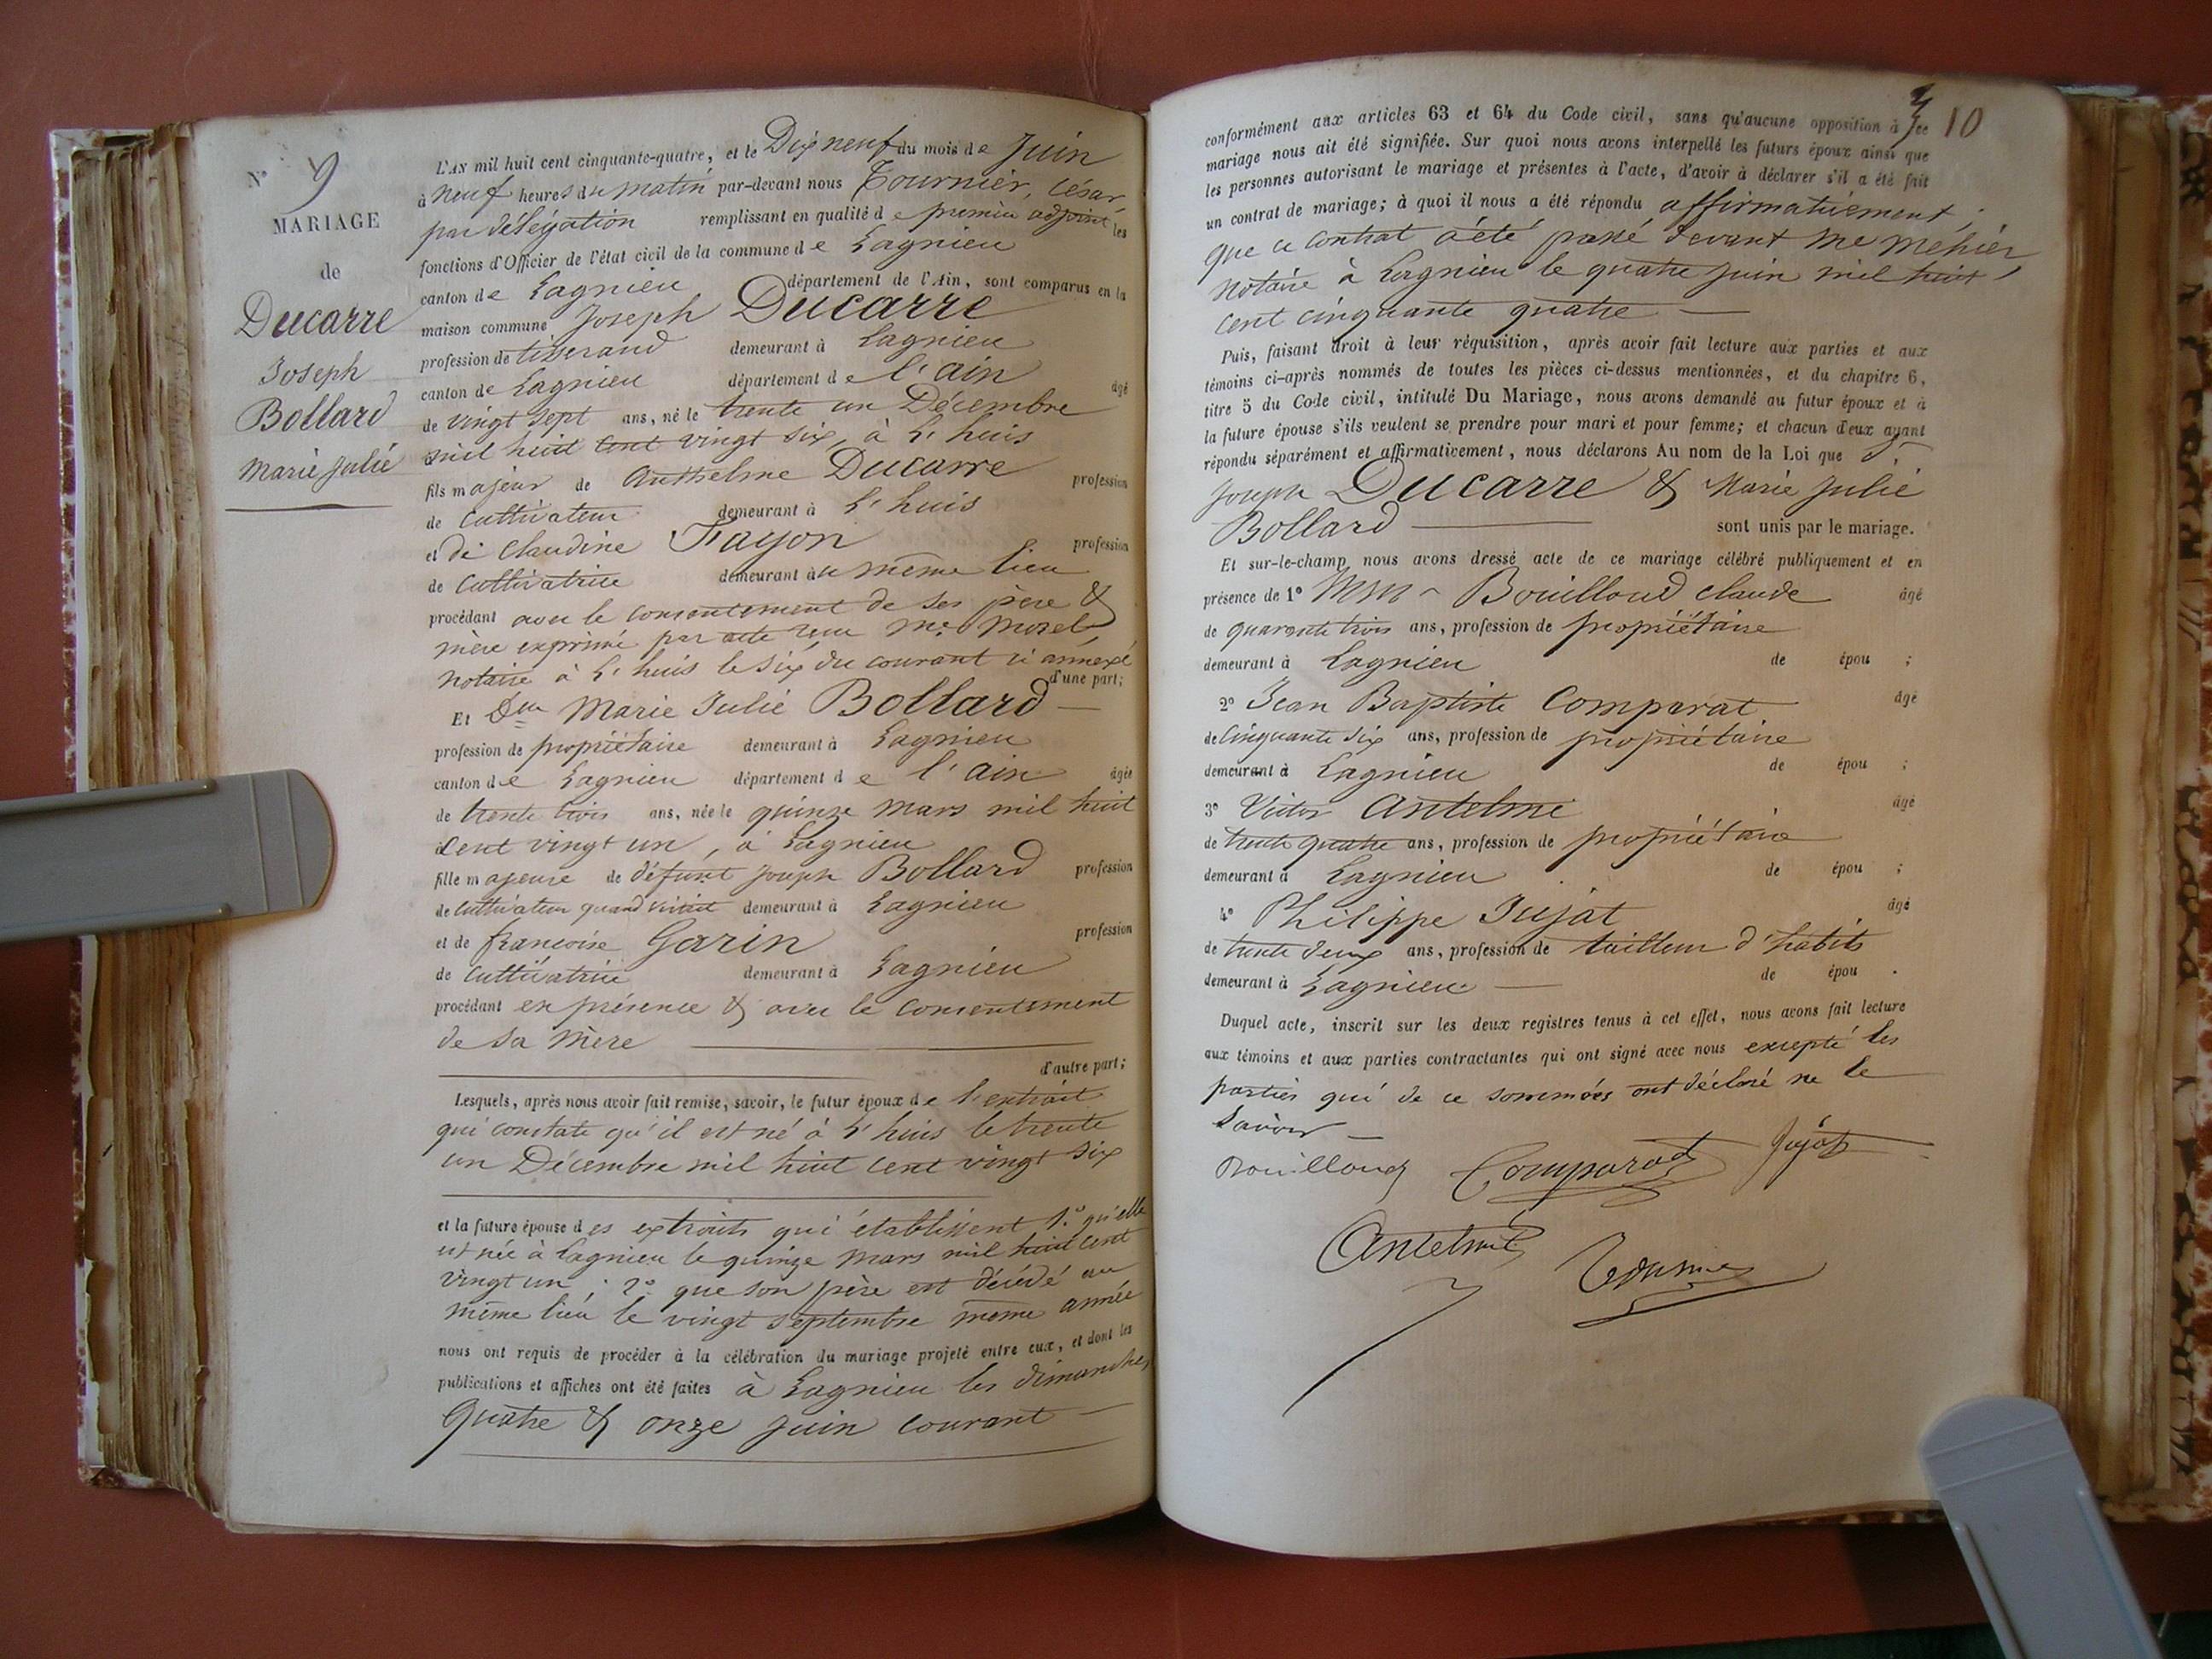 N° 9
MARIAGE
de
Ducarre
Joseph
Bollard
Marie Julie
L'AN mil huit cent cinquante-quatre, et le Dix neuf du mois de Juin
à neuf heures du matin par-devant nous Tournier, César,
par délégation remplissant en qualité de premier adjoint les
fonctions d'Officier de l'état civil de la commune de Lagnieu
canton de Lagnieu département de l'Ain, sont comparus en la
maison commune Joseph Ducarre
profession de tisserand demeurant à Lagnieu
canton de Lagnieu département de l'ain âgé
de vingt sept ans, né le trente un Décembre
mil huit cent vingt six, à L'huis
fils majeur de Anthelme Ducarre profession
de Cultivateur demeurant à L'huis
et de Claudine Fayon profession
de Cultivatrice demeurant au même lieu
procédant avec le consentement de ses père &
mère exprimé par acte reçu Me Morel,
notaire à L'huis le six du courant ci annexé
d'une part;
Et Dlle Marie Julie Bollard —
profession de propriétaire demeurant à Lagnieu
canton de Lagnieu département de l'ain âgée
de trente trois ans, née le quinze mars mil huit
cent vingt un, à Lagnieu
fille majeure de défunt Joseph Bollard profession
de Cultivateur quand vivait demeurant à Lagnieu
et de françoise Garin profession
de Cultivatrice demeurant à Lagnieu
procédant en présence & avec le consentement
de sa mère
d'autre part;
Lesquels, après nous avoir fait remise, savoir, le futur époux de l'extrait
qui constate qu'il est né à L'huis le trente
un Décembre mil huit cent vingt six
et la future épouse des extraits qui établissent 1.° qu'elle
est née à Lagnieu le quinze mars mil huit cent
vingt un ; 2° que son père est décédé au
même lieu le vingt septembre même année
nous ont requis de procéder à la célébration du mariage projeté entre eux, et dont les
publications et affiches ont été faites à Lagnieu les dimanches
Quatre & onze juin courant —
10
conformément aux articles 63 et 64 du Code civil, sans qu'aucune opposition à ce
mariage nous ait été signifiée. Sur quoi nous avons interpellé les futurs époux ainsi que
les personnes autorisant le mariage et présentes à l'acte, d'avoir à déclarer s'il a été fait
un contrat de mariage; à quoi il nous a été répondu affirmativement.
que ce contrat a été passé devant Me Méhier
notaire à Lagnieu le quatre juin mil huit
cent cinquante quatre —
Puis, faisant droit à leur réquisition, après avoir fait lecture aux parties et aux
témoins ci-après nommés de toutes les pièces ci-dessus mentionnées, et du chapitre 6,
titre 5 du Code civil, intitulé Du Mariage, nous avons demandé au futur époux et à
la future épouse s'ils veulent se prendre pour mari et pour femme; et chacun d'eux ayant
répondu séparément et affirmativement, nous déclarons Au nom de la Loi que
Joseph Ducarre & Marie Julie
Bollard — sont unis par le mariage.
Et sur-le-champ nous avons dressé acte de ce mariage célébré publiquement et en
présence de 1° Bouilloud Claude âgé
de quarante trois ans, profession de propriétaire
demeurant à Lagnieu de épou ;
2° Jean Baptiste Comparat âgé
de Cinquante six ans, profession de propriétaire
demeurant à Lagnieu de épou ;
3° Victor Antelme âgé
de trente quatre ans, profession de propriétaire
demeurant à Lagnieu de épou ;
4° Philippe Jujat âgé
de trente deux ans, profession de tailleur d'habits
demeurant à Lagnieu — de épou .
Duquel acte, inscrit sur les deux registres tenus à cet effet, nous avons fait lecture
aux témoins et aux parties contractantes qui ont signé avec nous excepté les
parties qui de ce sommées ont déclaré ne le
savoir —
Bouilloud Comparat Jujat
Antelme Tournier